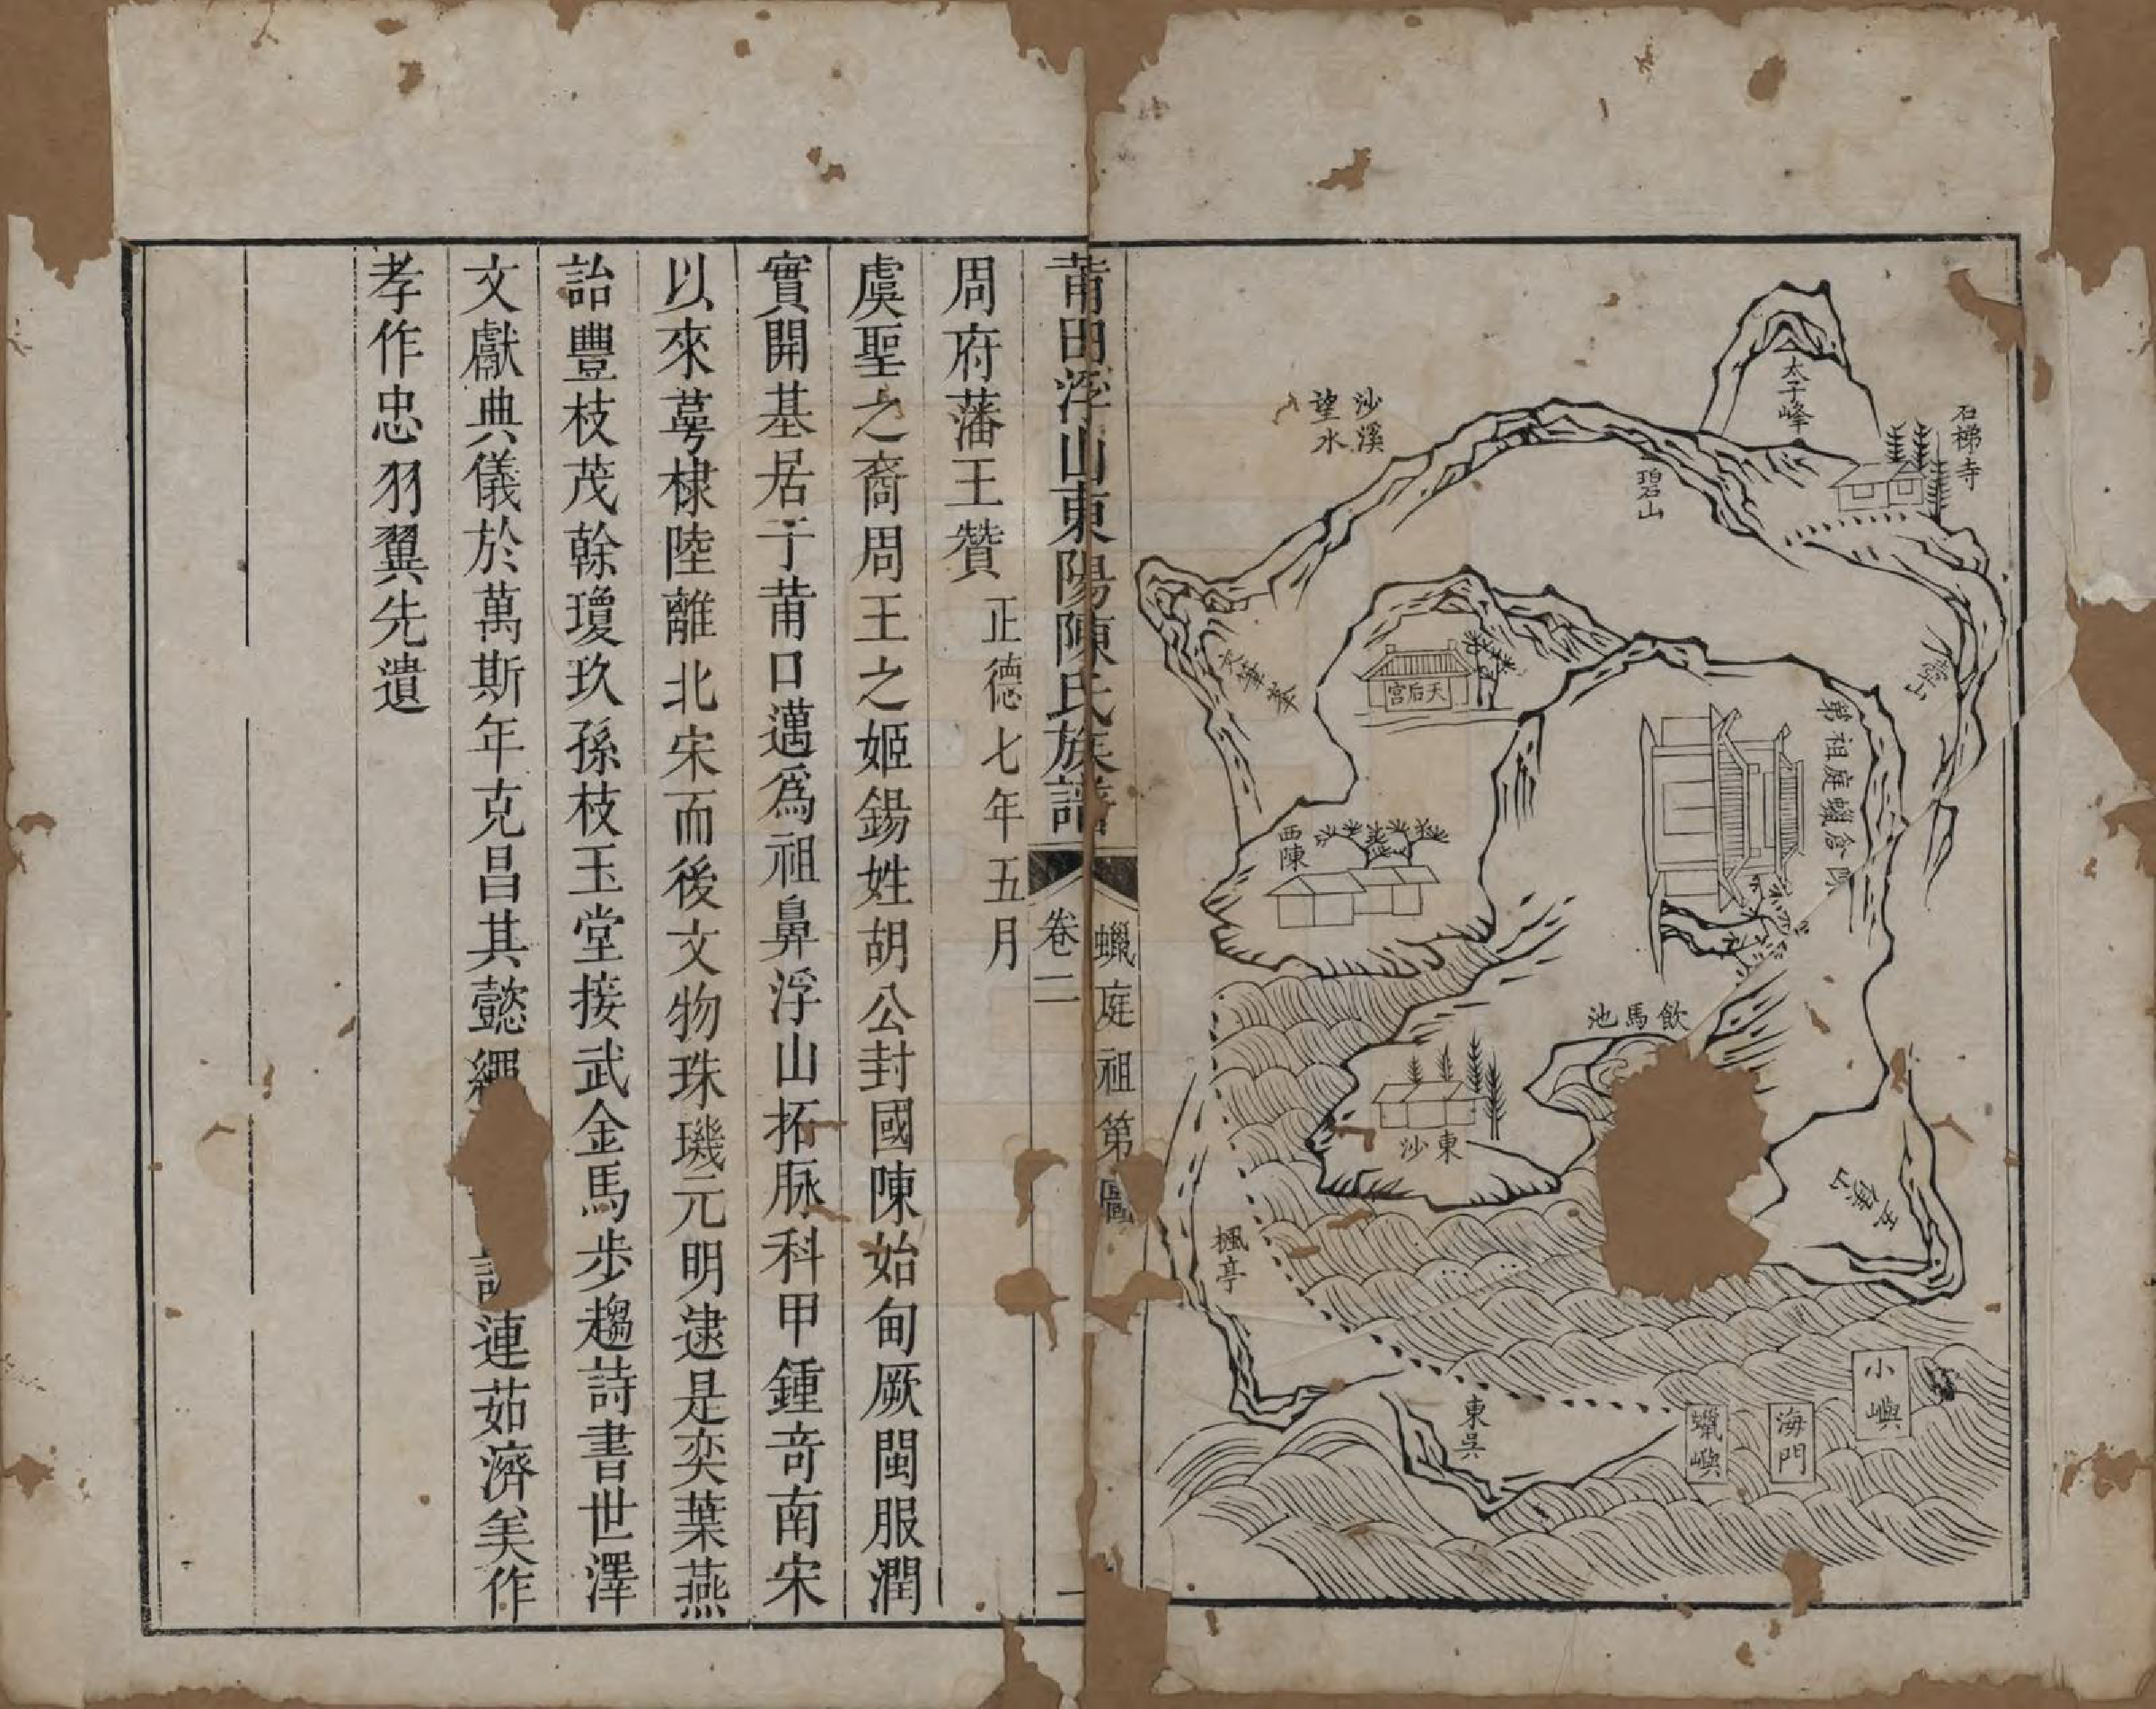 太子峰
石梯寺
沙溪
望水
碧山
天后宮
第祖庭蠟倉
西陳
飲馬池
東沙
楓亭
東吳
蠟嶼
海門
小嶼
蠟庭祖第圖
莆田浮山東陽陳氏族譜
卷二
一
周府藩王贊 正德七年五月
虞聖之裔周王之姬錫姓胡公封國陳始甸厥閩服潤
實開基居于莆口邁爲祖鼻浮山拓脉科甲鍾奇南宋
以來萼棣陸離北宋而後文物珠璣元明逮是奕葉燕
詒豐枝茂榦瓊玖孫枝玉堂接武金馬步趨詩書世澤
文獻典儀於萬斯年克昌其懿繩連茹濟美作
孝作忠羽翼先遺